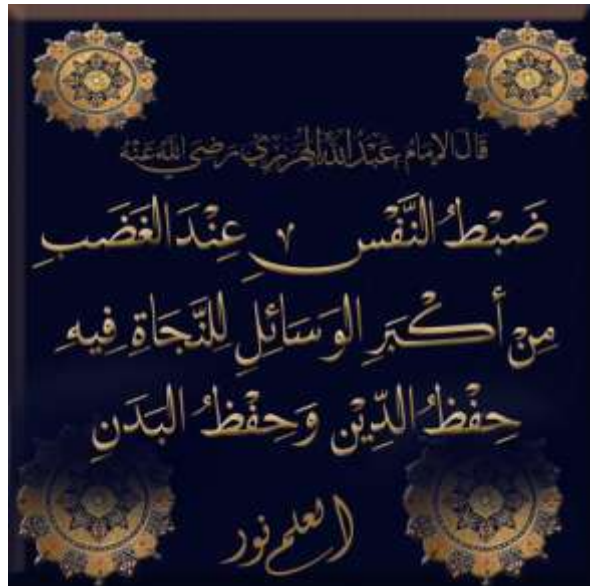 قال الإمام عبد الله الهرري رضي الله عنه
ضَبْطُ النَّفْسِ عِنْدَ الغَضَبِ
مِنْ أَكْبَرِ الوَسَائِلِ لِلنَّجَاةِ فِيهِ
حِفْظُ الدِّيْنِ وَحِفْظُ البَدَنِ
العلم نور